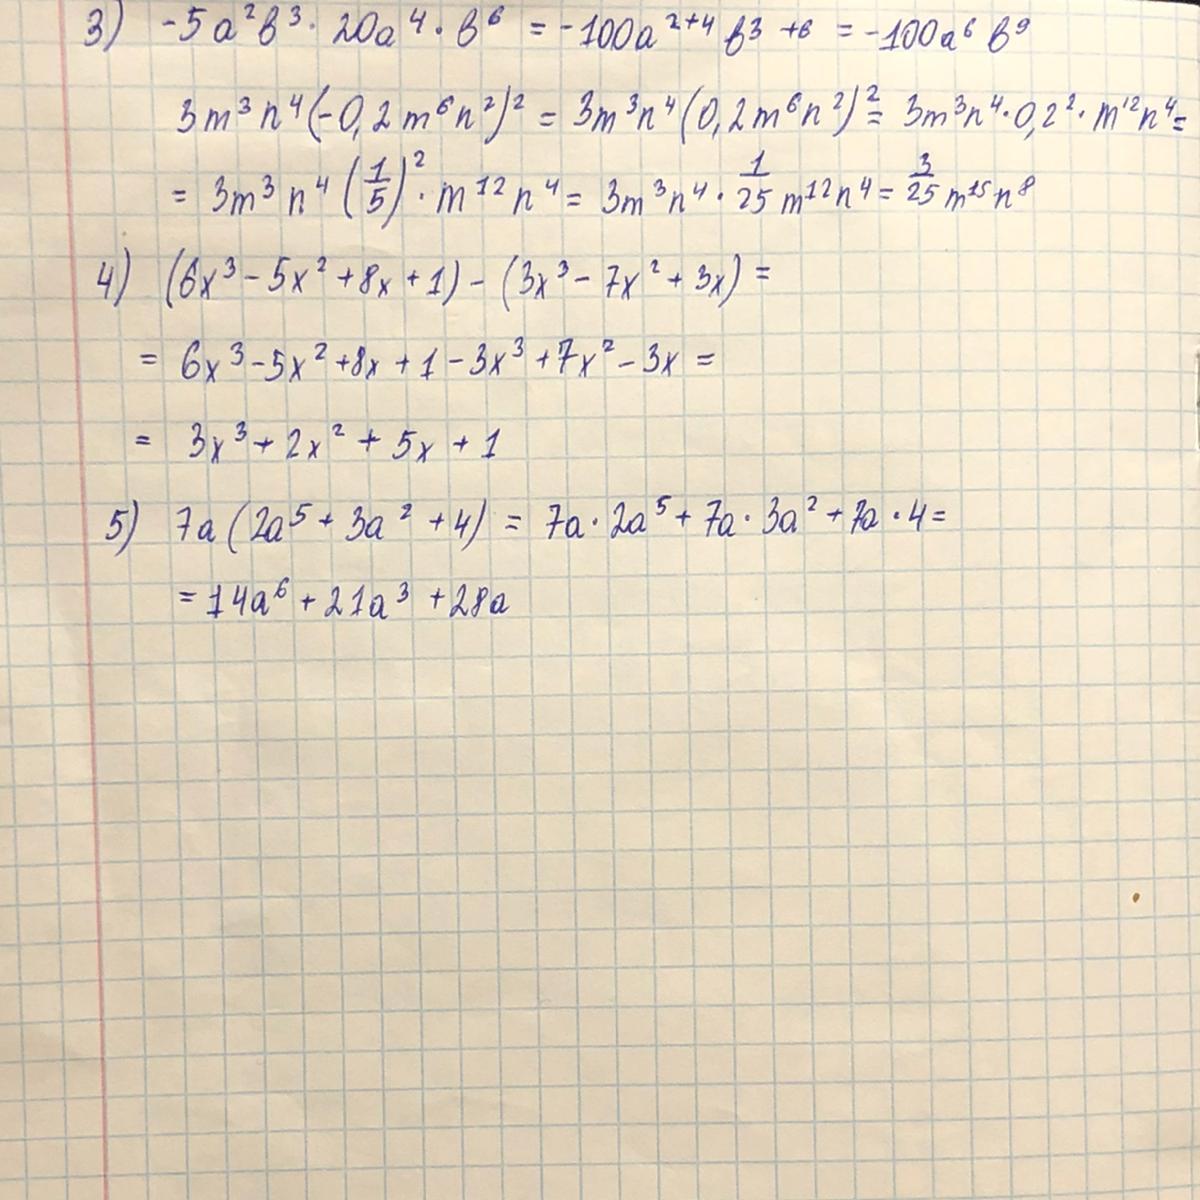 3) -5a²b³ · 20a⁴ · b⁶ = -100a²⁺⁴ b³ ⁺⁶ = -100a⁶ b⁹
3m³n⁴(-0,2m⁶n²)² = 3m³n⁴(0,2m⁶n²)² = 3m³n⁴ · 0,2² · m¹²n⁴ =
= 3m³n⁴(1/5)² · m¹²n⁴ = 3m³n⁴ · 1/25 m¹²n⁴ = 3/25 m¹⁵n⁸
4) (6x³ - 5x² + 8x + 1) - (3x³ - 7x² + 3x) =
= 6x³ - 5x² + 8x + 1 - 3x³ + 7x² - 3x =
= 3x³ + 2x² + 5x + 1
5) 7a(2a⁵ + 3a² + 4) = 7a · 2a⁵ + 7a · 3a² + 7a · 4 =
= 14a⁶ + 21a³ + 28a